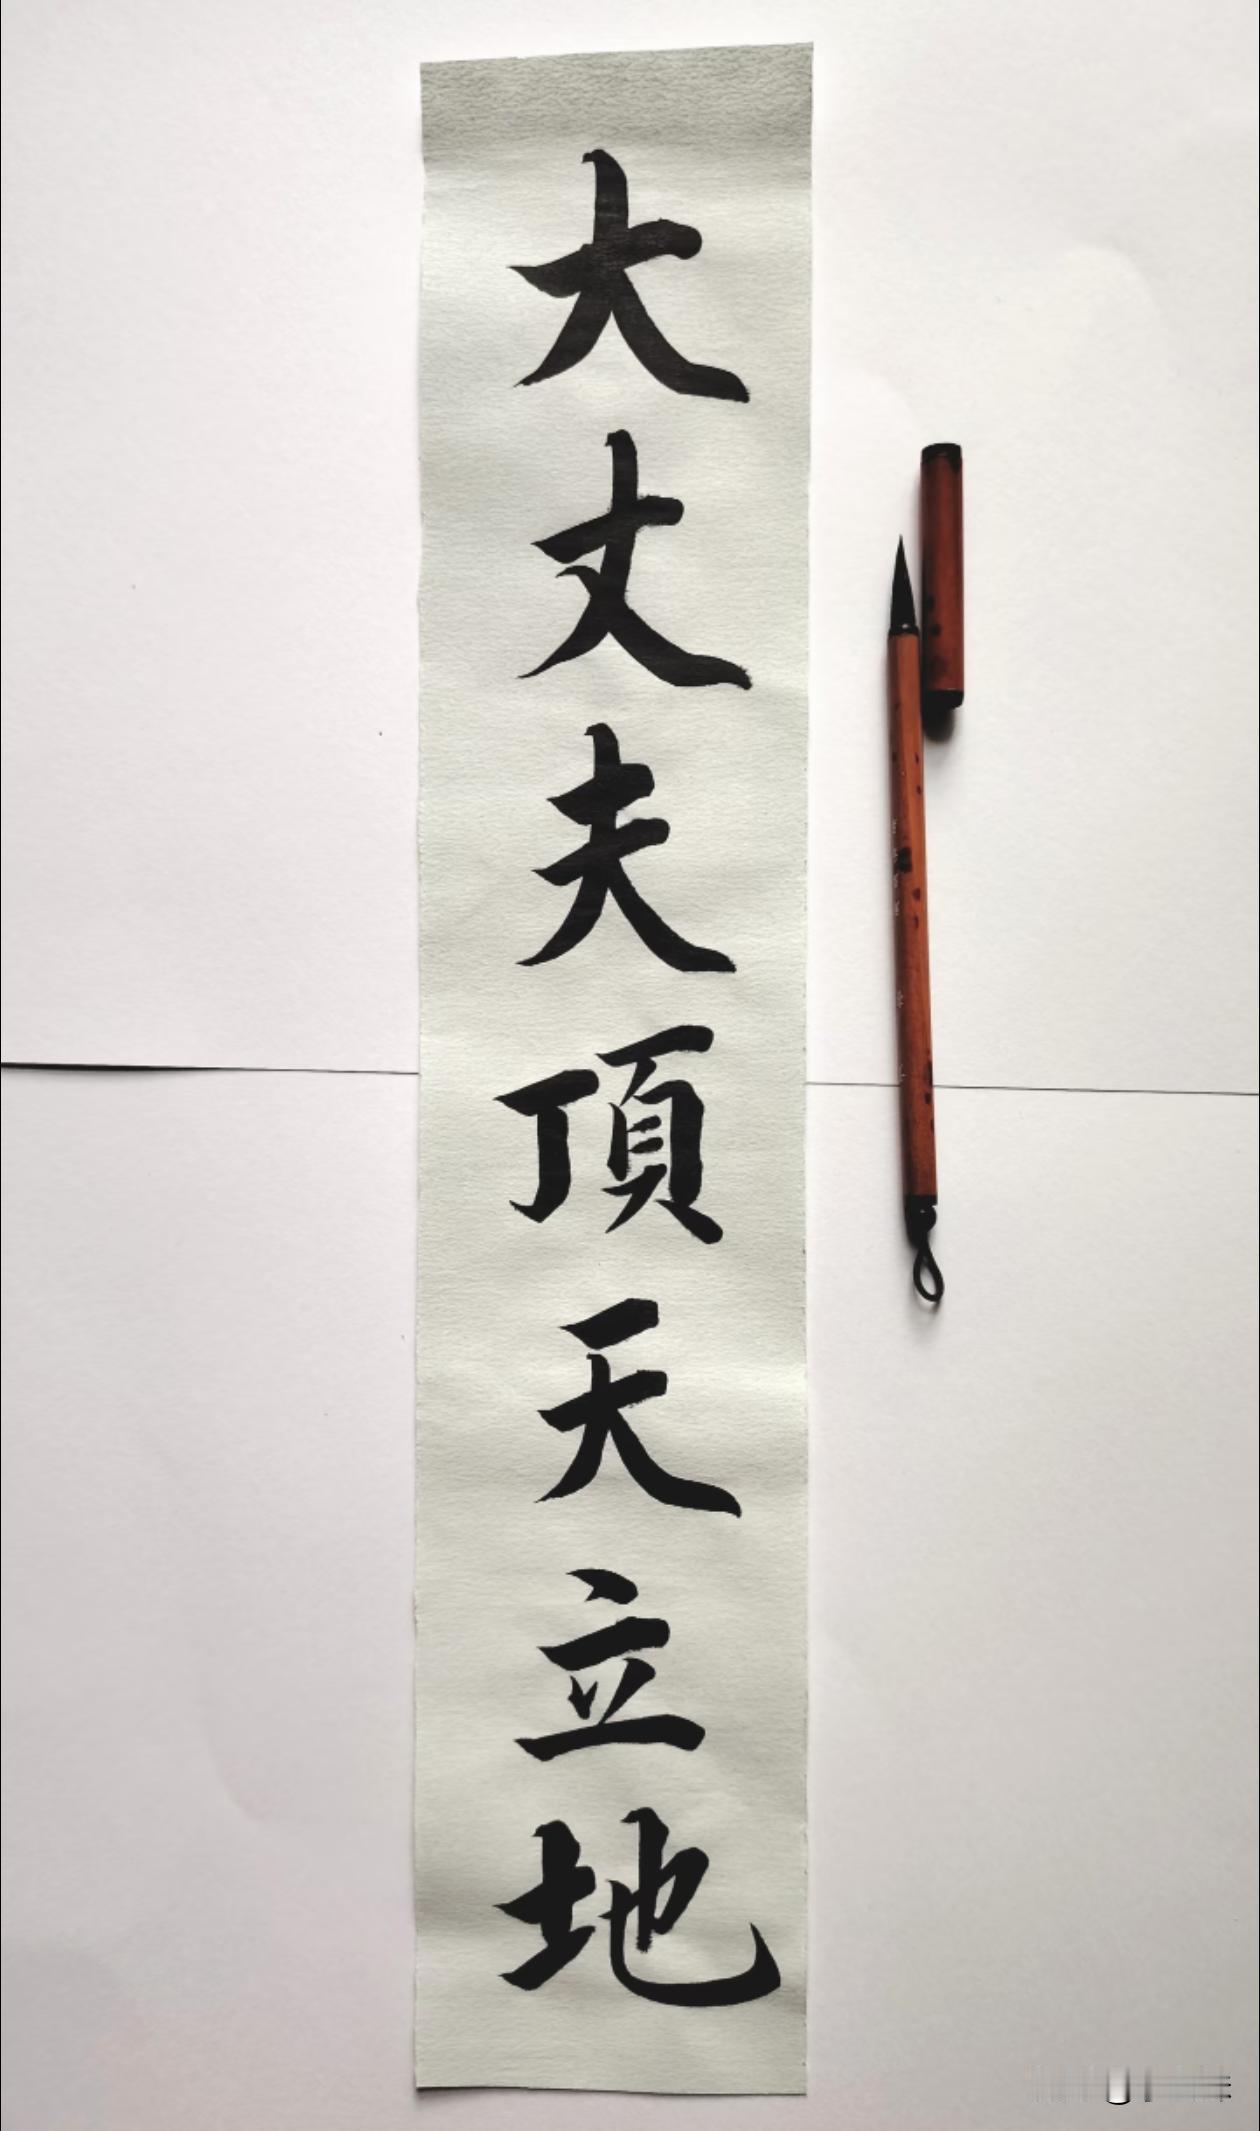 大丈夫頂天立地